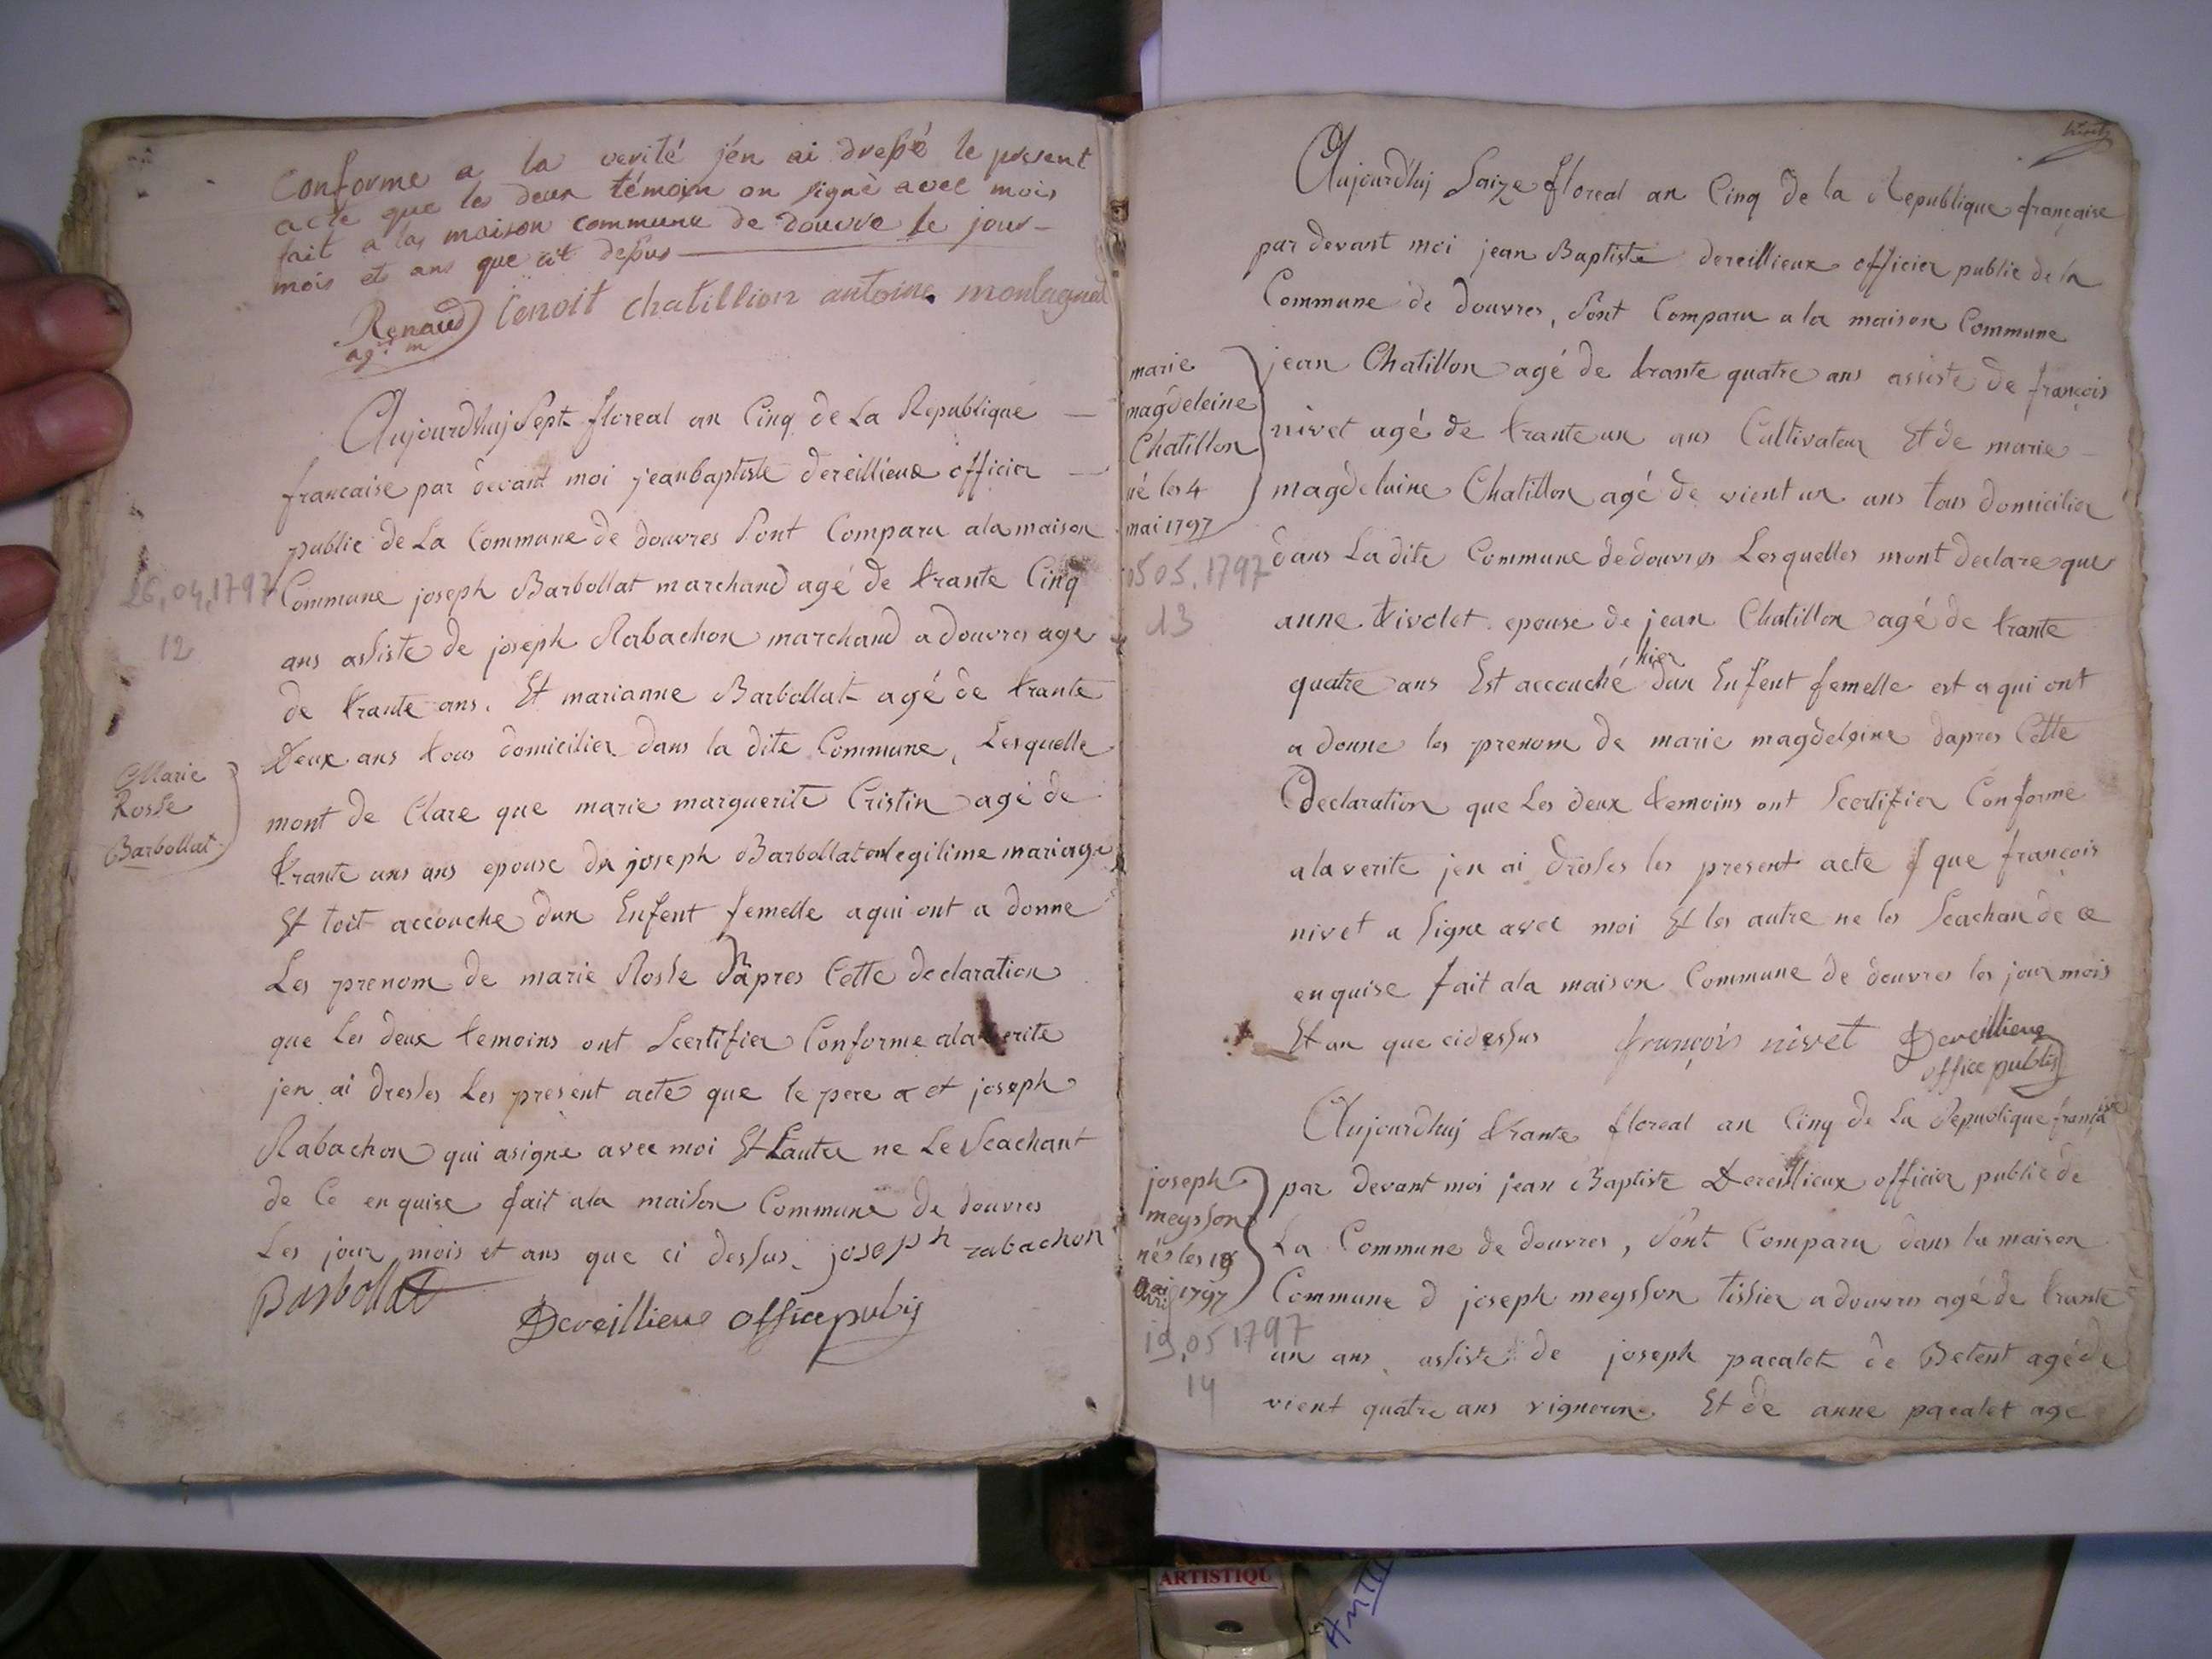 Conforme a la verité j'en ai dressé le present
acte que les deux témoin on signè avec mois
fait a las maison commune de douvre le jour
mois et ans que cit desus
Renaud benoit chatillion antoine montagnat
agt m
Aujourdhuj Sept floreal an Cinq de La Republique
francaise par devant moi jeanbaptiste dereillieux officier
public de La Commune de douvres Sont Comparu ala maison
26,04,1797
12
Commune joseph Barbollat marchand agé de trante Cinq
ans assiste de joseph Rabachon marchand a douvres age
de trante ans. Et marianne Barbollat agé de trante
Deux ans tous domicilier dans la dite Commune, Lesquelle
Marie
Rosse
Barbollat
mont de Clare que marie marguerite Cristin agé de
trante uns ans epouse de joseph Barbollat en legitime mariage
Et toit accouche dun Enfent femelle aqui ont a donne
Les prenom de marie Rosse Dapres Cette declaration
que Les deux temoins ont Scertifier Conforme ala verite
jen ai dresses Les present acte que le pere a et joseph
Rabachon qui asigne avec moi Et Lautre ne Le Scachant
de Ce enquise fait ala maison Commune de douvres
Les jour mois et ans que ci dessus. joseph rabachon
Barbollat
Dereillieux office publij
Aujourdhuj Saize floreal an Cinq de la Republique francaise
par devant moi jean Baptiste dereillieux officier public de la
Commune de douvres, Sont Comparu a la maison Commune
marie
magdeleine
Chatillon
né les 4
mai 1797
05 05. 1797
13
jean Chatillon agé de trante quatre ans assiste de françois
nivet agé de trante un ans Cultivateur Et de marie
magdelaine Chatillon agé de vient un ans tous domicilier
dans La dite Commune de douvres Lesquelles mont declare que
anne tivolet epouse de jean Chatillon agé de trante
quatre ans Est accouché hier dun Enfent femelle est a qui ont
a donne les prenom de marie magdeleine dapres Cette
Declaration que Les deux temoins ont Scertifier Conforme
ala verite jen ai dresses les present acte que françois
nivet a signe avec moi Et les autre ne les Scachan de ce
enquise fait ala maison Commune de douvres les jour mois
Et an que cidessus françois nivet Dereillieux
office publis
Aujourdhuj trante floreal an Cinq de La Republique française
joseph
meysson
nés les 18
mai 1797
19,05 1797
14
par devant moi jean Baptiste Dereillieux officier public de
La Commune de douvres, Sont Comparu dans la maison
Commune d joseph meysson tissier a douvres agé de trante
un ans assiste de joseph pacalet de Betent agé de
vient quatre ans vigneron. Et de anne pacalet age
ARTISTIQU